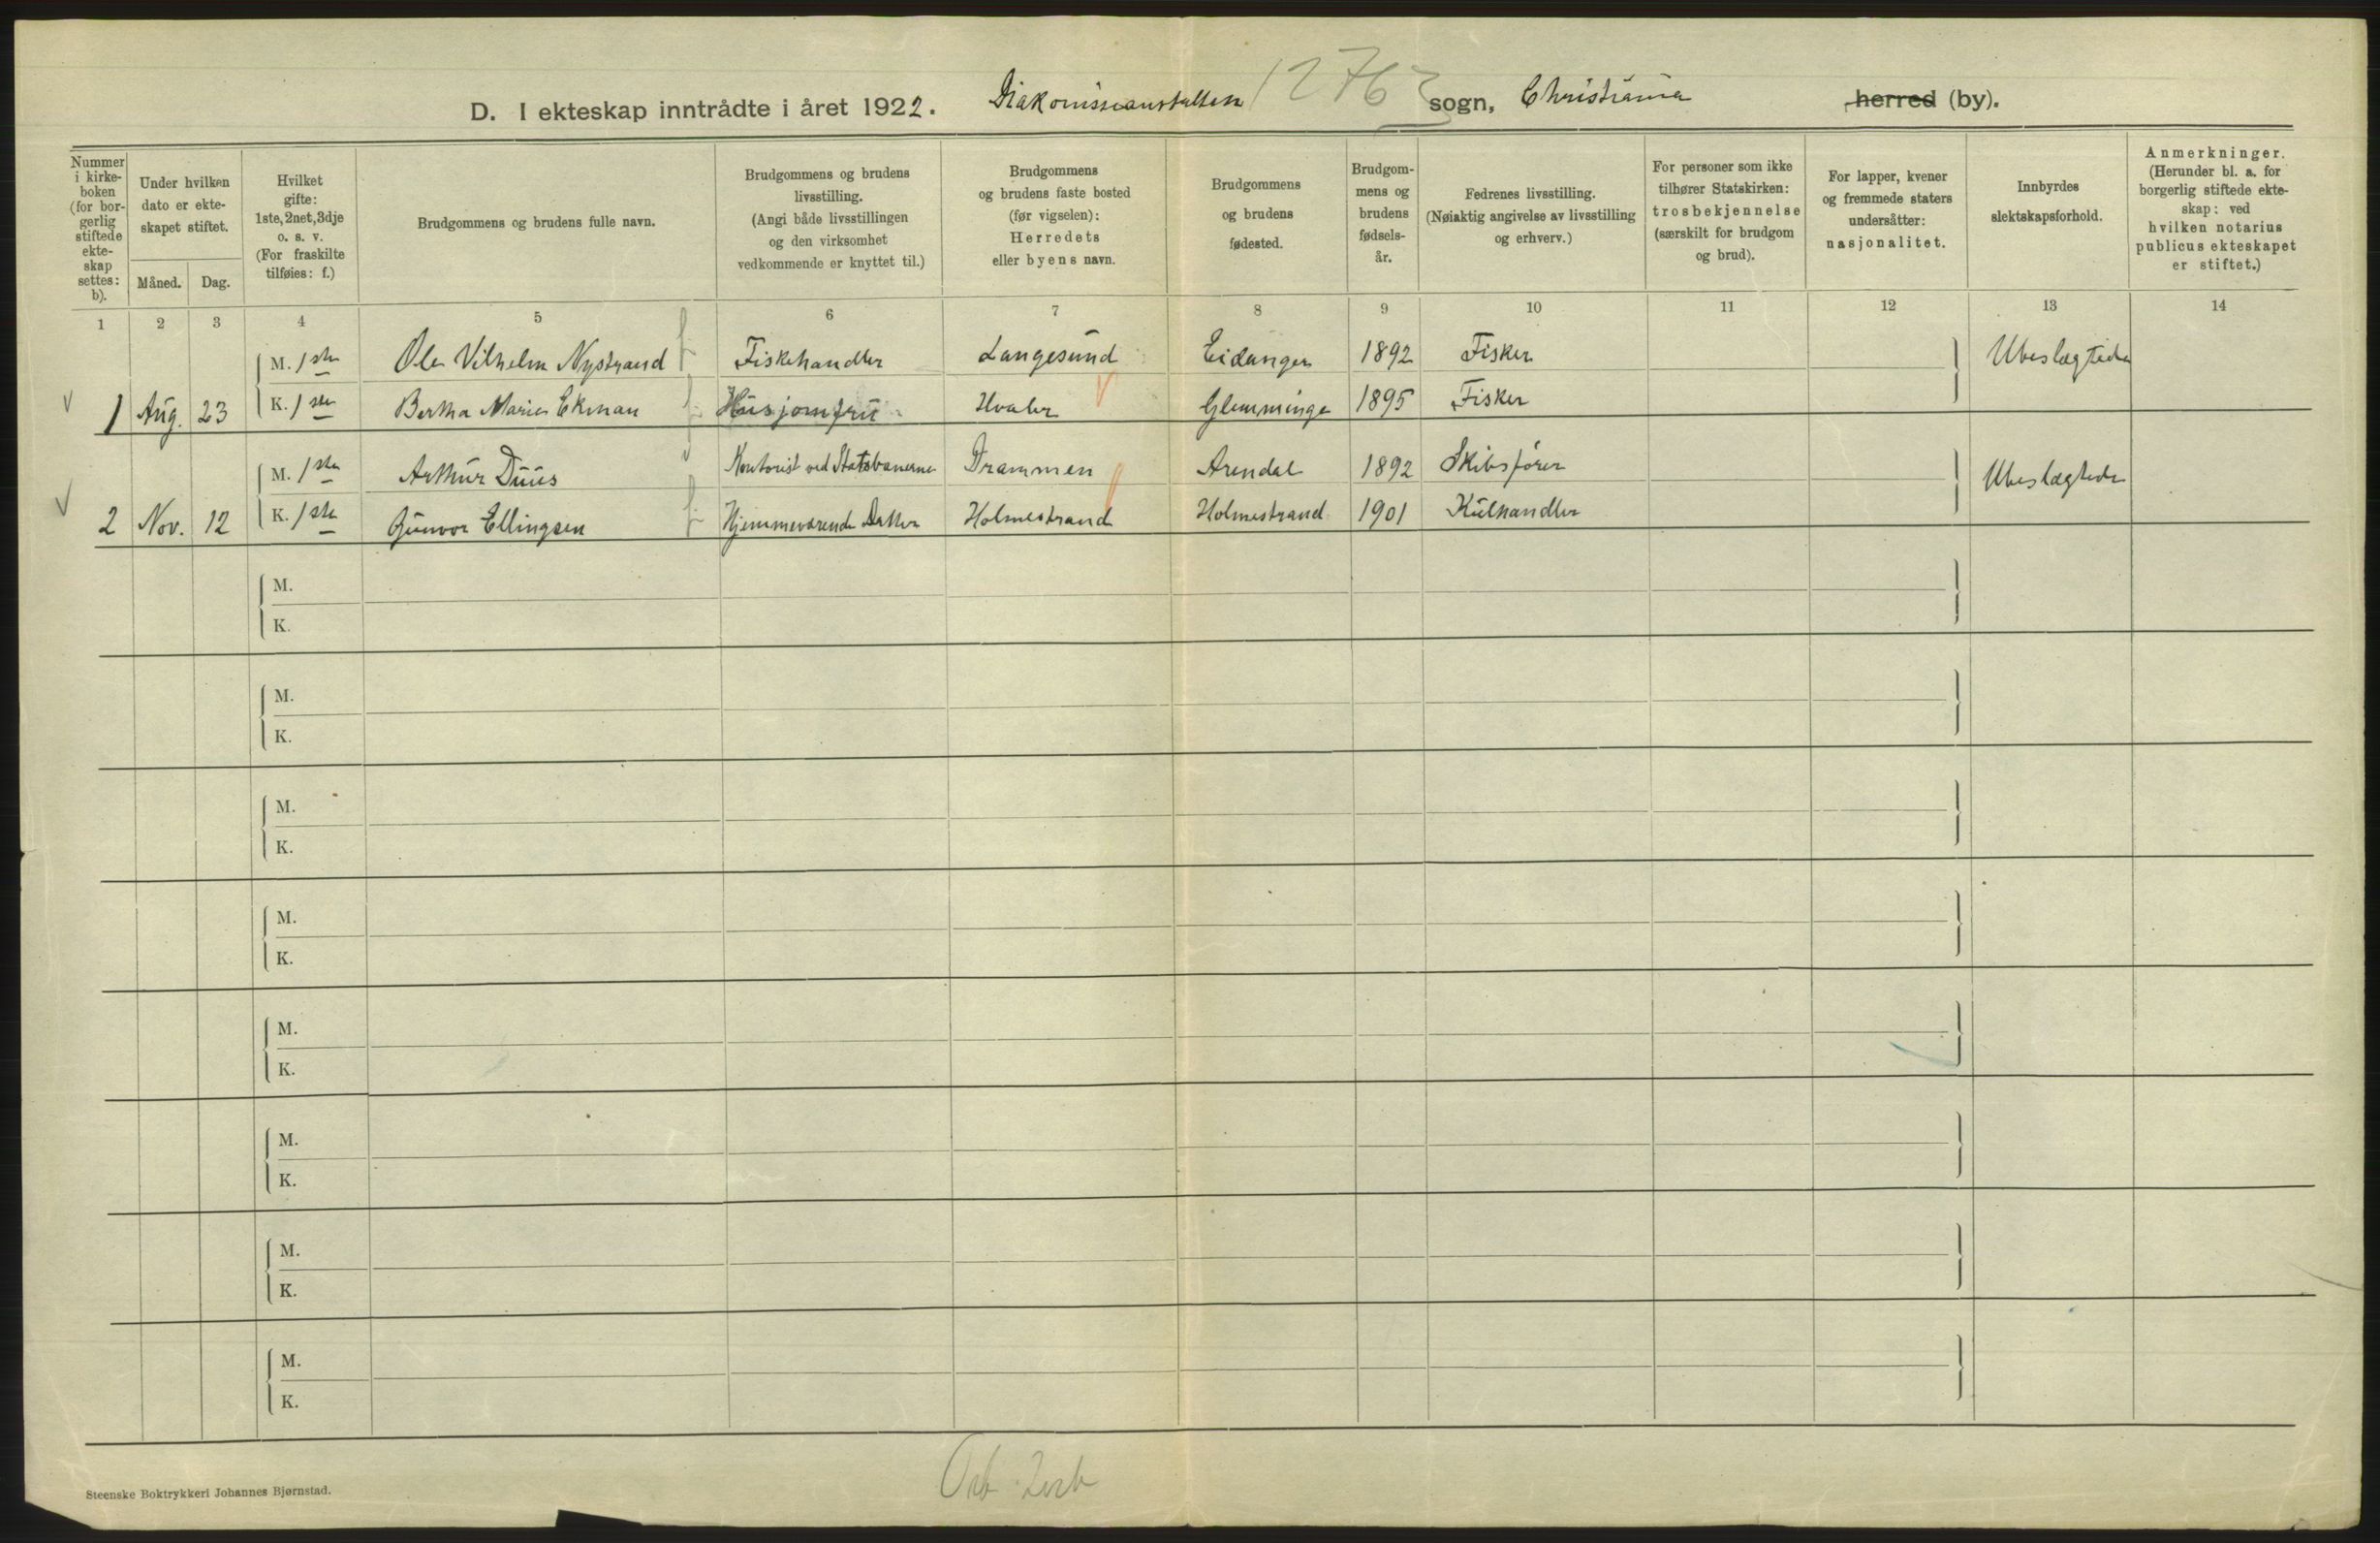 D. I ekteskap inntrådte i året 1922. Diakonisseanstalten 12763 sogn, Christiania herred (by).
Nummer i kirke-boken (for bor-gerlig stiftede ekte-skap settes: b).
Under hvilken dato er ekte-skapet stiftet.
Måned. Dag.
Hvilket gifte: 1ste, 2net, 3dje o. s. v. (For fraskilte tilføies: f.)
Brudgommens og brudens fulle navn.
Brudgommens og brudens livsstilling. (Angi både livsstillingen og den virksomhet vedkommende er knyttet til.)
Brudgommens og brudens faste bosted (før vigselen): Herredets eller byens navn.
Brudgommens og brudens fødested.
Brudgom-mens og brudens fødsels-år.
Fedrenes livsstilling. (Nøiaktig angivelse av livsstilling og erhverv.)
For personer som ikke tilhører Statskirken: trosbekjennelse (særskilt for brudgom og brud).
For lapper, kvener og fremmede staters undersåtter: nasjonalitet.
Innbyrdes slektskapsforhold.
Anmerkninger. (Herunder bl. a. for borgerlig stiftede ekte-skap: ved hvilken notarius publicus ekteskapet er stiftet.)
1 2 3 4 5 6 7 8 9 10 11 12 13 14
M. 1ste Ole Vilhelm Nystrand Fiskehandler Langesund Eidanger 1892 Fisker Ubeslægtede
1 Aug. 23 K. 1ste Bertha Marie Ekman Husjomfru Hvaler Glemminge 1895 Fisker
M. 1ste Arthur Duus Kontorist ved Statsbanerne Drammen Arendal 1892 Skibsfører Ubeslægtede
2 Nov. 12 K. 1ste Gunvor Ellingsen Hjemmeværende Datter Holmestrand Holmestrand 1901 Kulhandler
M.
K.
M.
K.
M.
K.
M.
K.
M.
K.
M.
K.
M.
K.
M.
K.
Steenske Boktrykkeri Johannes Bjørnstad.